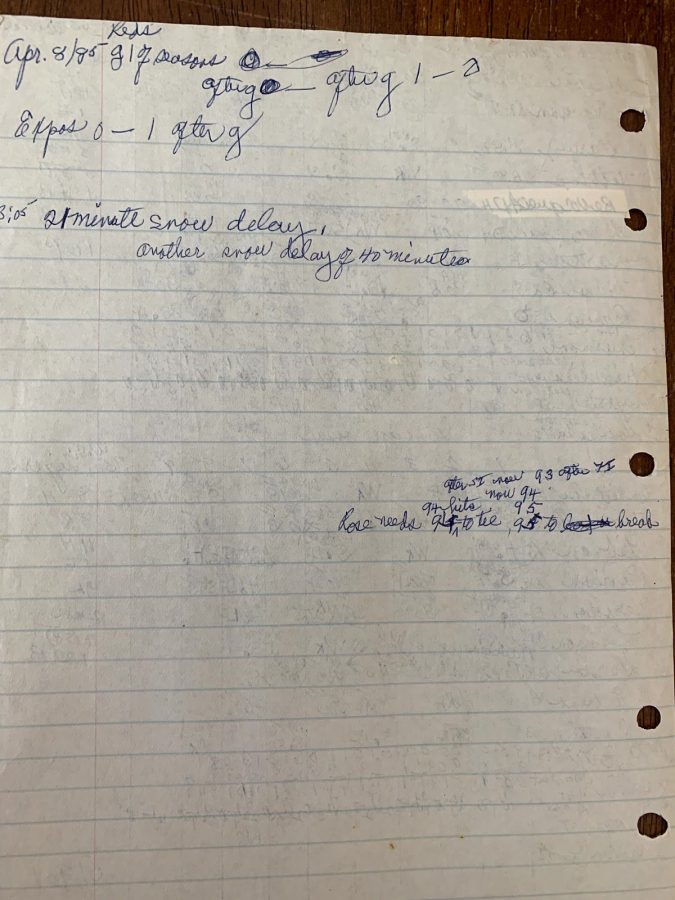 Reds
Apr. 8/85 g 1 of seasons 0 —
after g 0 — after g 1 — 0
Expos 0 — 1 after g
3:05 21 minute snow delay,
another snow delay of 40 minutes
after 5I now 93 after 7I
94 hits now 94
95
Rose needs to tie, 95 to break